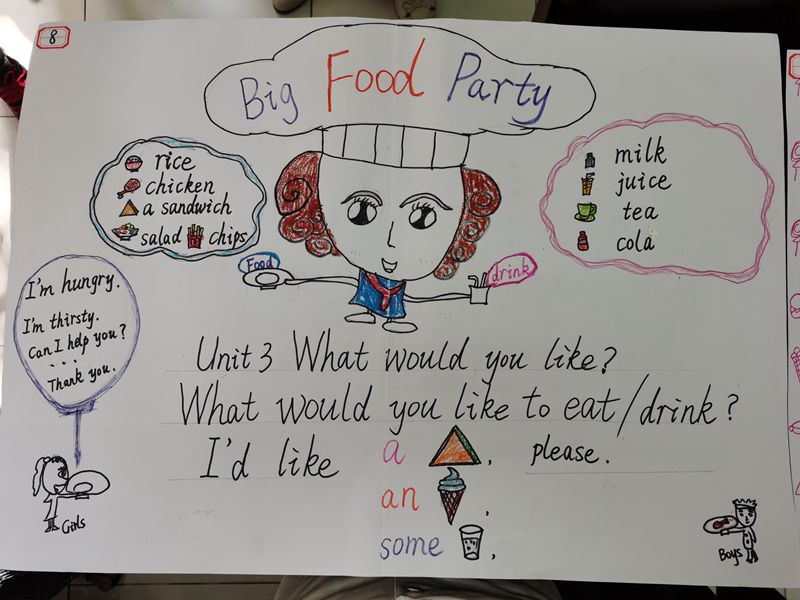 8
Big Food Party
rice
chicken
a sandwich
salad chips
milk
juice
tea
cola
Food
drink
I'm hungry.
I'm thirsty.
Can I help you?
...
Thank you.
Unit 3 What would you like?
What would you like to eat/drink?
I'd like a , please.
an ,
some ,
Girls
Boys